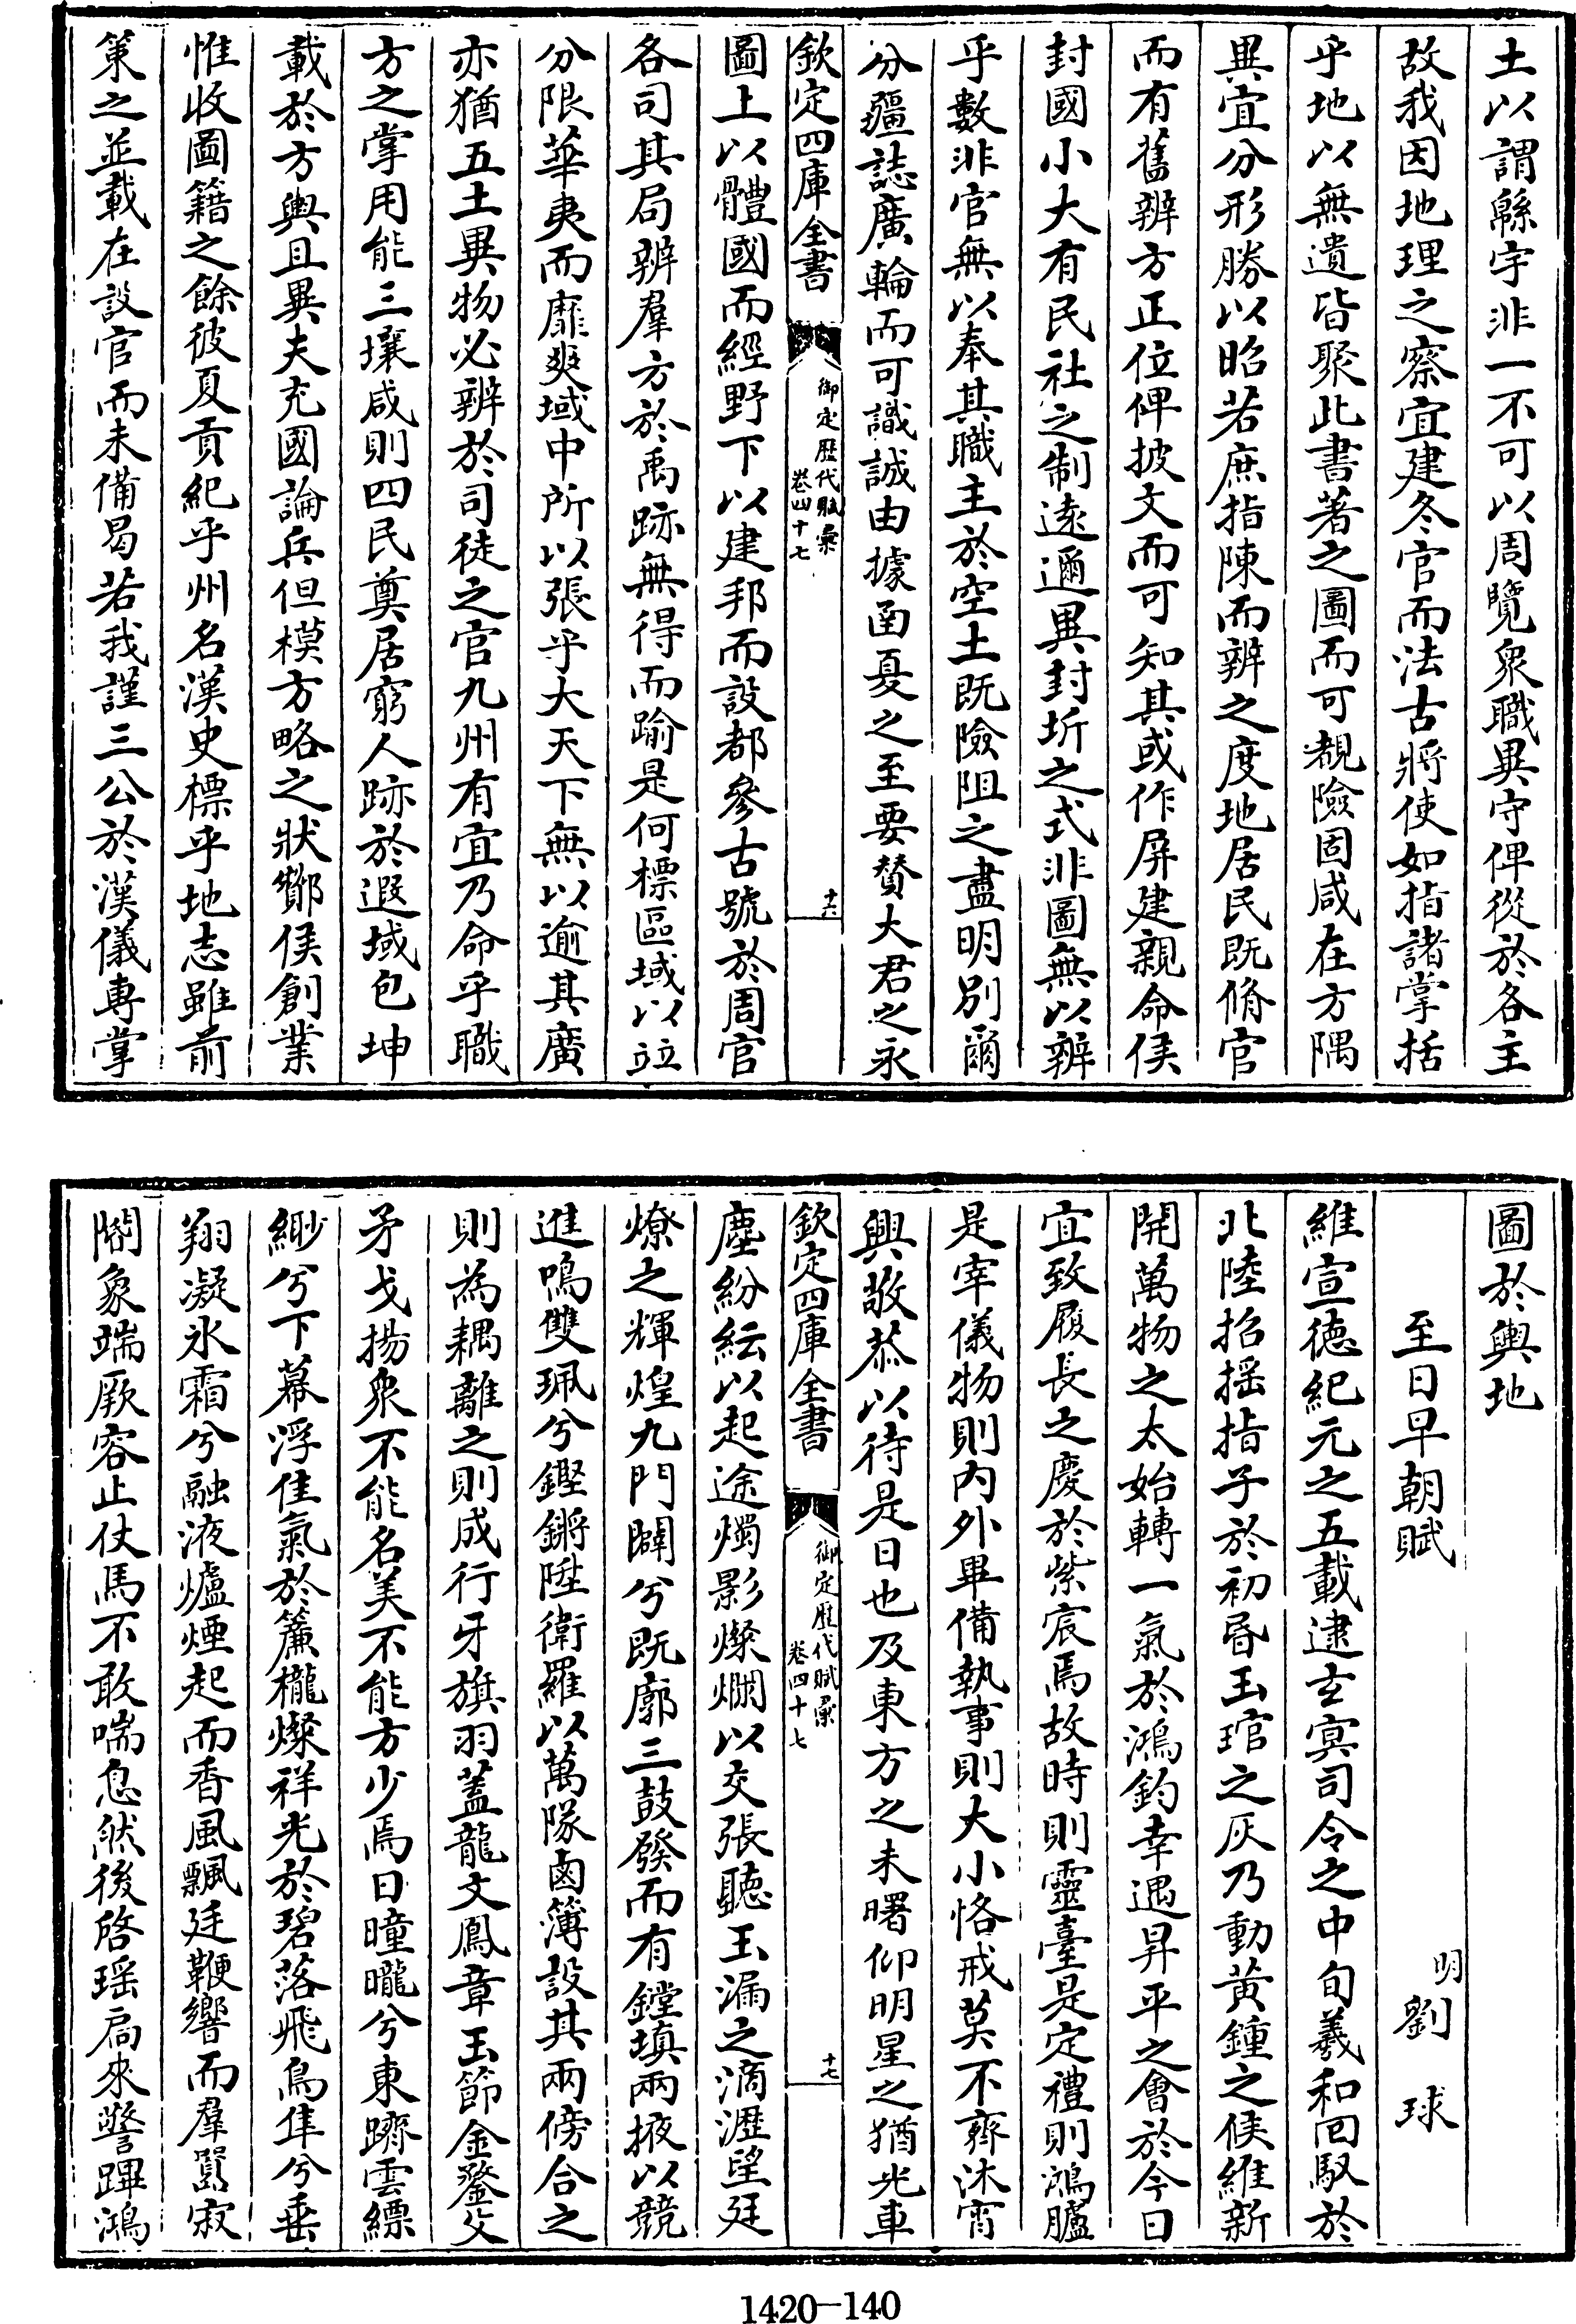 土以謂緜宇非一不可以周覽衆職異守俾從於各主
故我因地理之察宜建冬官而法古將使如指諸掌括
乎地以無遺皆聚此書著之圖而可覩險固咸在方隅
異宜分形勝以昭若庶指陳而辨之度地居民既脩官
而有舊辨方正位俾披文而可知其或作屏建親命侯
封國小大有民社之制遠邇異封圻之式非圖無以辨
乎數非官無以奉其職主於空土既險阻之盡明別爾
分疆誌廣輪而可識誠由據函夏之至要贊大君之永
欽定四庫全書
御定歷代賦彙
卷四十七
十六
圖上以體國而經野下以建邦而設都參古號於周官
各司其局辨羣方於禹跡無得而踰是何標區域以竝
分限華夷而靡爽域中所以張乎大天下無以逾其廣
亦猶五土異物必辨於司徒之官九州有宜乃命乎職
方之掌用能三壤咸則四民奠居窮人跡於遐域包坤
載於方輿且異夫充國論兵但模方略之狀酇侯創業
惟收圖籍之餘彼夏貢紀乎州名漢史標乎地志雖前
策之並載在設官而未備曷若我謹三公於漢儀專掌
圖於輿地
至日早朝賦
明劉球
維宣德紀元之五載逮玄冥司令之中旬羲和回馭於
北陸招搖指子於初昏玉琯之灰乃動黃鍾之候維新
開萬物之太始轉一氣於鴻鈞幸遇昇平之會於今日
宜致履長之慶於紫宸焉故時則靈臺是定禮則鴻臚
是宰儀物則內外畢備執事則大小恪戒莫不齊沐宵
興敬恭以待是日也及東方之未曙仰明星之猶光車
欽定四庫全書
御定歷代賦彙
卷四十七
十七
塵紛紜以起途燭影燦爛以交張聽玉漏之滴瀝望廷
燎之輝煌九門闢兮既廓三鼓發而有鏜填兩掖以競
進鳴雙珮兮鏗鏘陛衛羅以萬隊鹵簿設其兩傍合之
則為耦離之則成行牙旗羽蓋龍文鳳章玉節金鐙殳
矛戈揚衆不能名美不能方少焉日曈曨兮東躋雲縹
緲兮下幕浮佳氣於簾櫳燦祥光於碧落飛鳥隼兮垂
翔凝氷霜兮融液爐煙起而香風飄廷鞭響而羣囂寂
闟象端厥容止仗馬不敢喘息然後啓瑶扃來警蹕鴻
1420-140